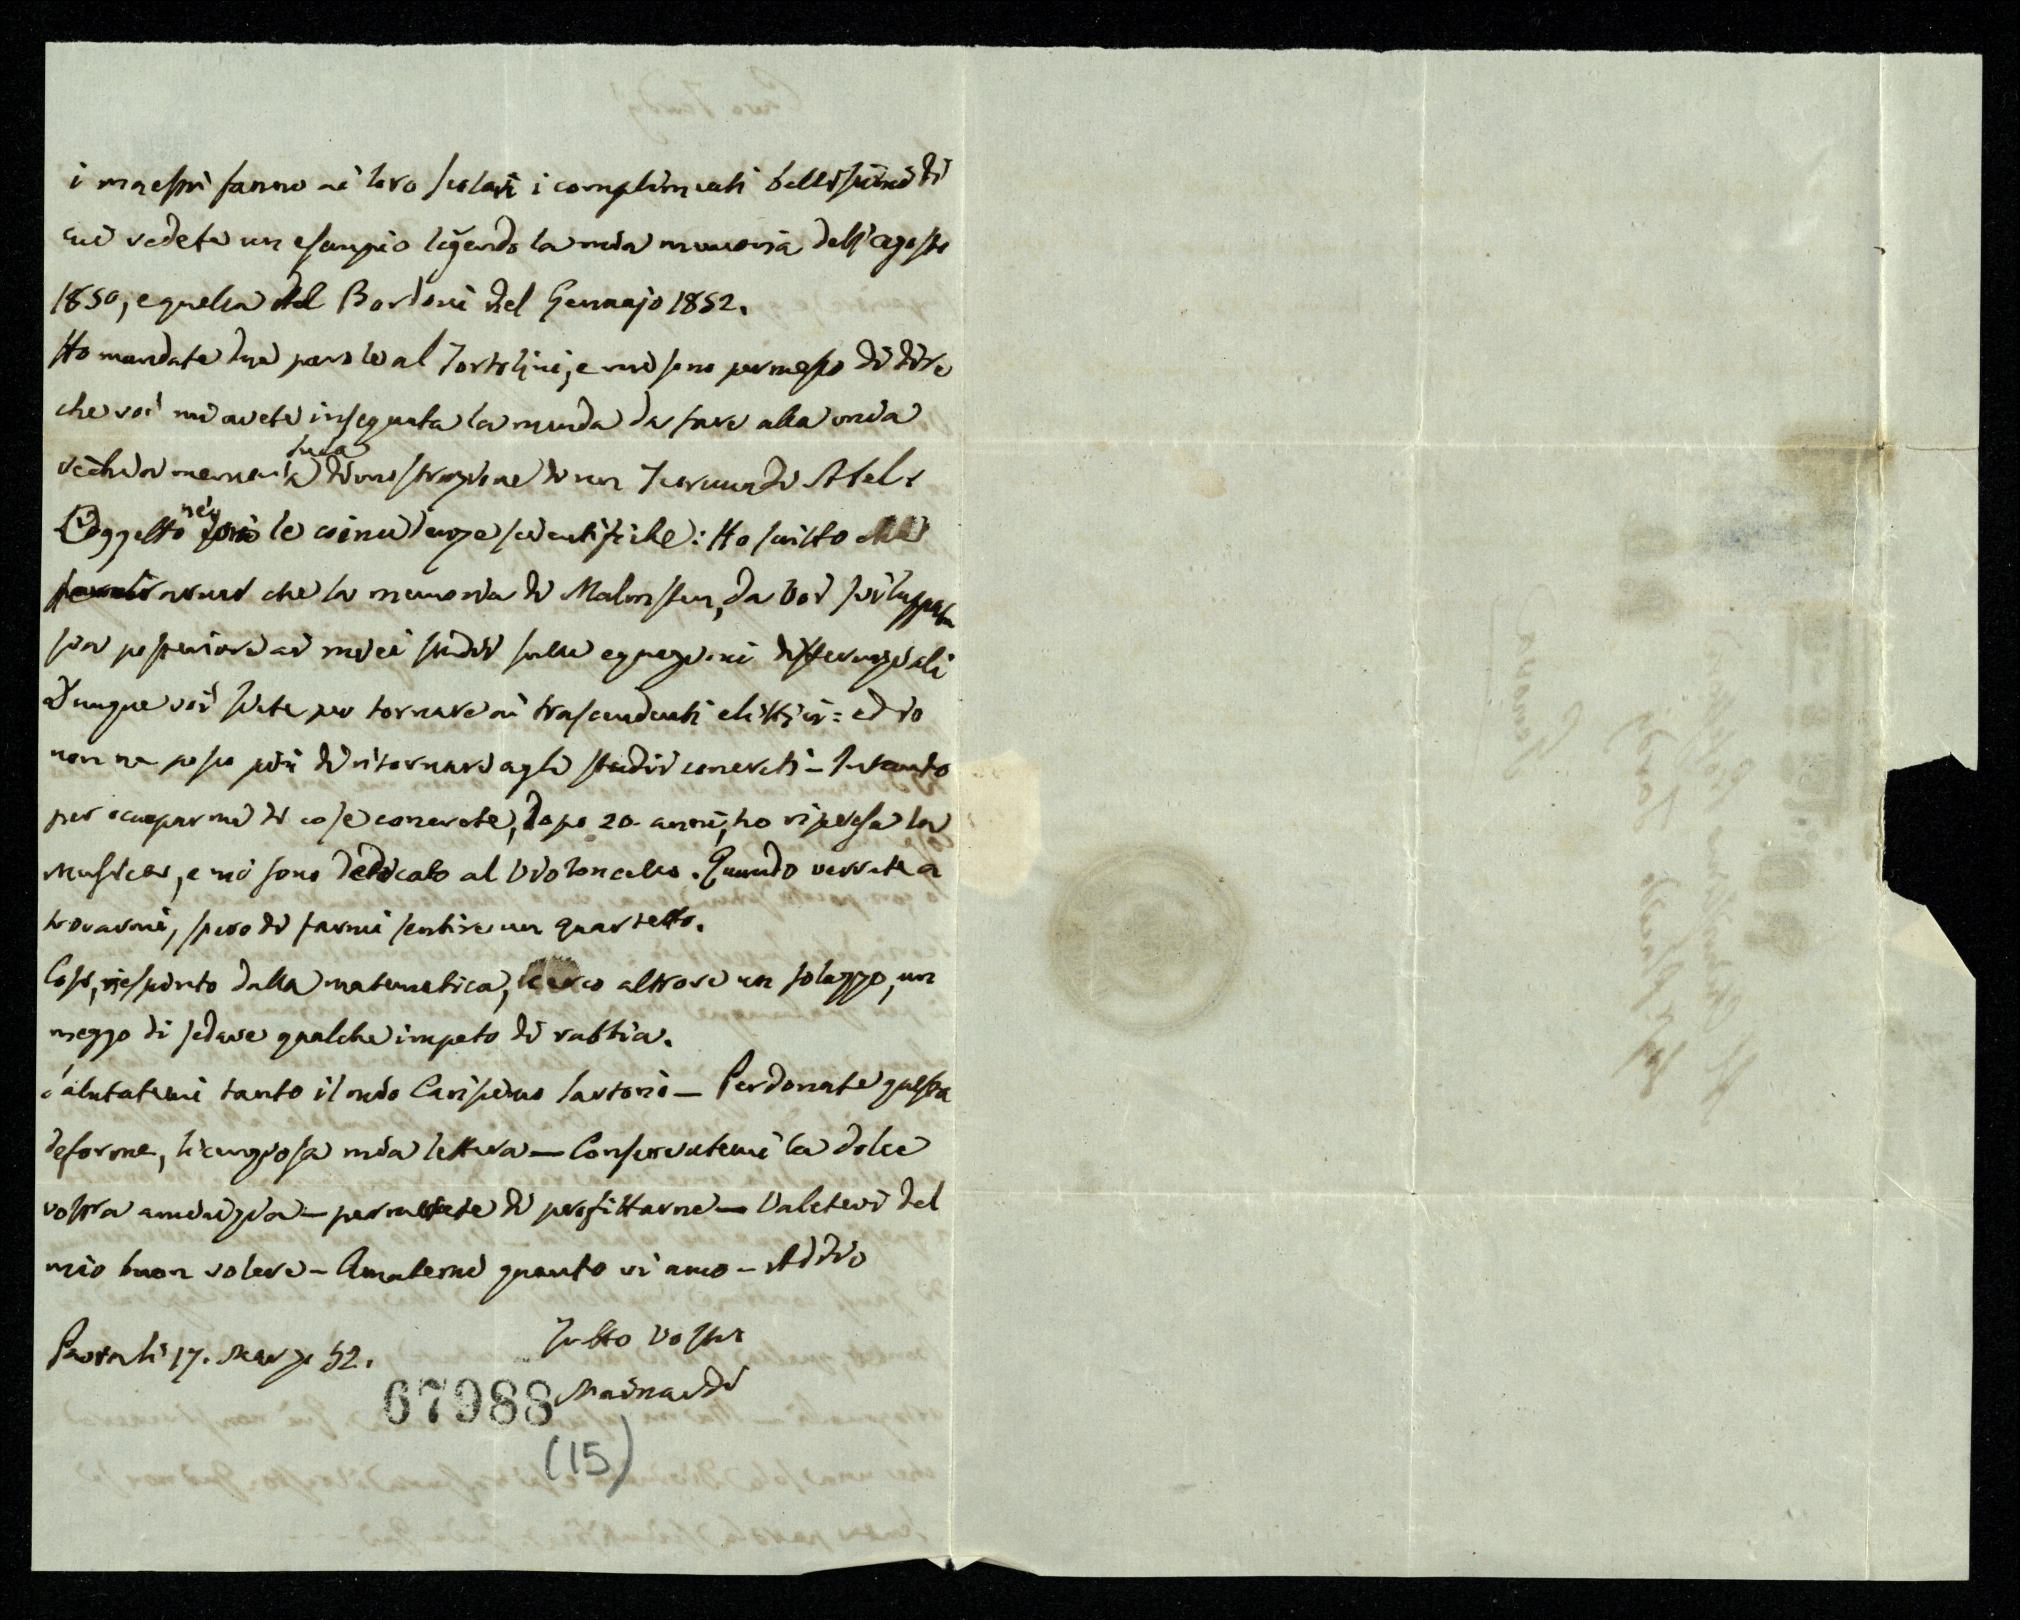 i maestri fanno ai loro scolari i complimenti bellissimi di
cui vedete un esempio legendo la mia memoria dell'agosto
1850, e quella del Bordoni del Gennajo 1852.
Ho mandate due parole al Tortolini, e mi sono permesso di dire
che voi mi avete insegnata la menda da fare alla mia
vechia memoria sulla dimostrazione di un Teorema di Abel.
L'oggetto nei le coincidenze scientifiche: Ho scritto
che la memoria di Malmsten, da voi sviluppata
sia posteriore ai miei studii sulle equazioni differenziali
Dunque voi siete per tornare ai trascendenti elittici = ed io
non ne posso più di ritornare agli studii concreti – Intanto
per occuparmi di cose concrete, dopo 20 anni, ho ripresa la
musica, e mi sono dedicato al Violoncello. Quando verrete a
trovarmi, spero di farmi sentire un quartetto.
Così, respinto dalla matematica, cerco altrove un solazzo, un
mezzo di sedare qualche impeto di rabbia.
Salutatemi tanto il mio Carissimo Sartorio – Perdonate questa
deforme, licenziosa mia lettera – Conservatemi la dolce
vostra amicizia – permettete di profittarne – Valetevi del
mio buon volere – Amatemi quanto vi amo – Addio
Pavia li 17. Marzo 52.
Tutto Vostro
Mainardi
67988
(15)